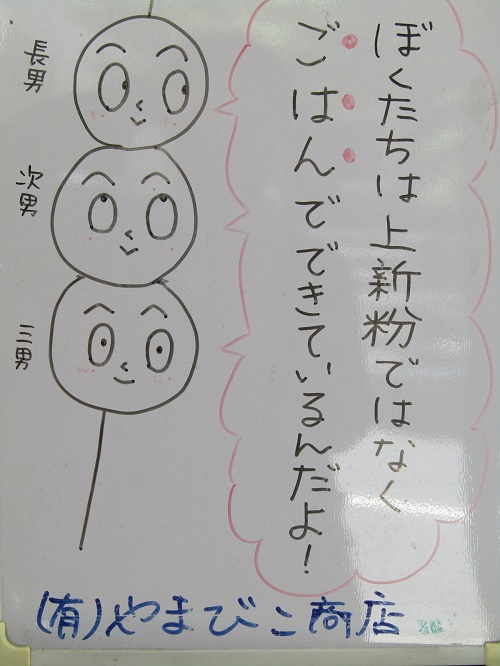 ぼくたちは上新粉ではなく
ごはんでできているんだよ！
長男
次男
三男
(有)やまびこ商店